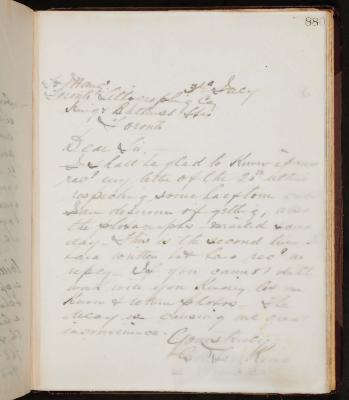 88
31st July
The Manr
Toronto Lithographing Co
King & Bathurst Sts
Toronto
Dear Sir,
I shall be glad to know if you
recd my letter of the 20th
respecting some half tone
I am desirous of getting, also
the photographs mailed same
day. This is the second time I
have written but have recd no
reply. If you cannot do the
work will you kindly let me
know & return photos. The
delay is causing me great
inconvenience.
Yours truly